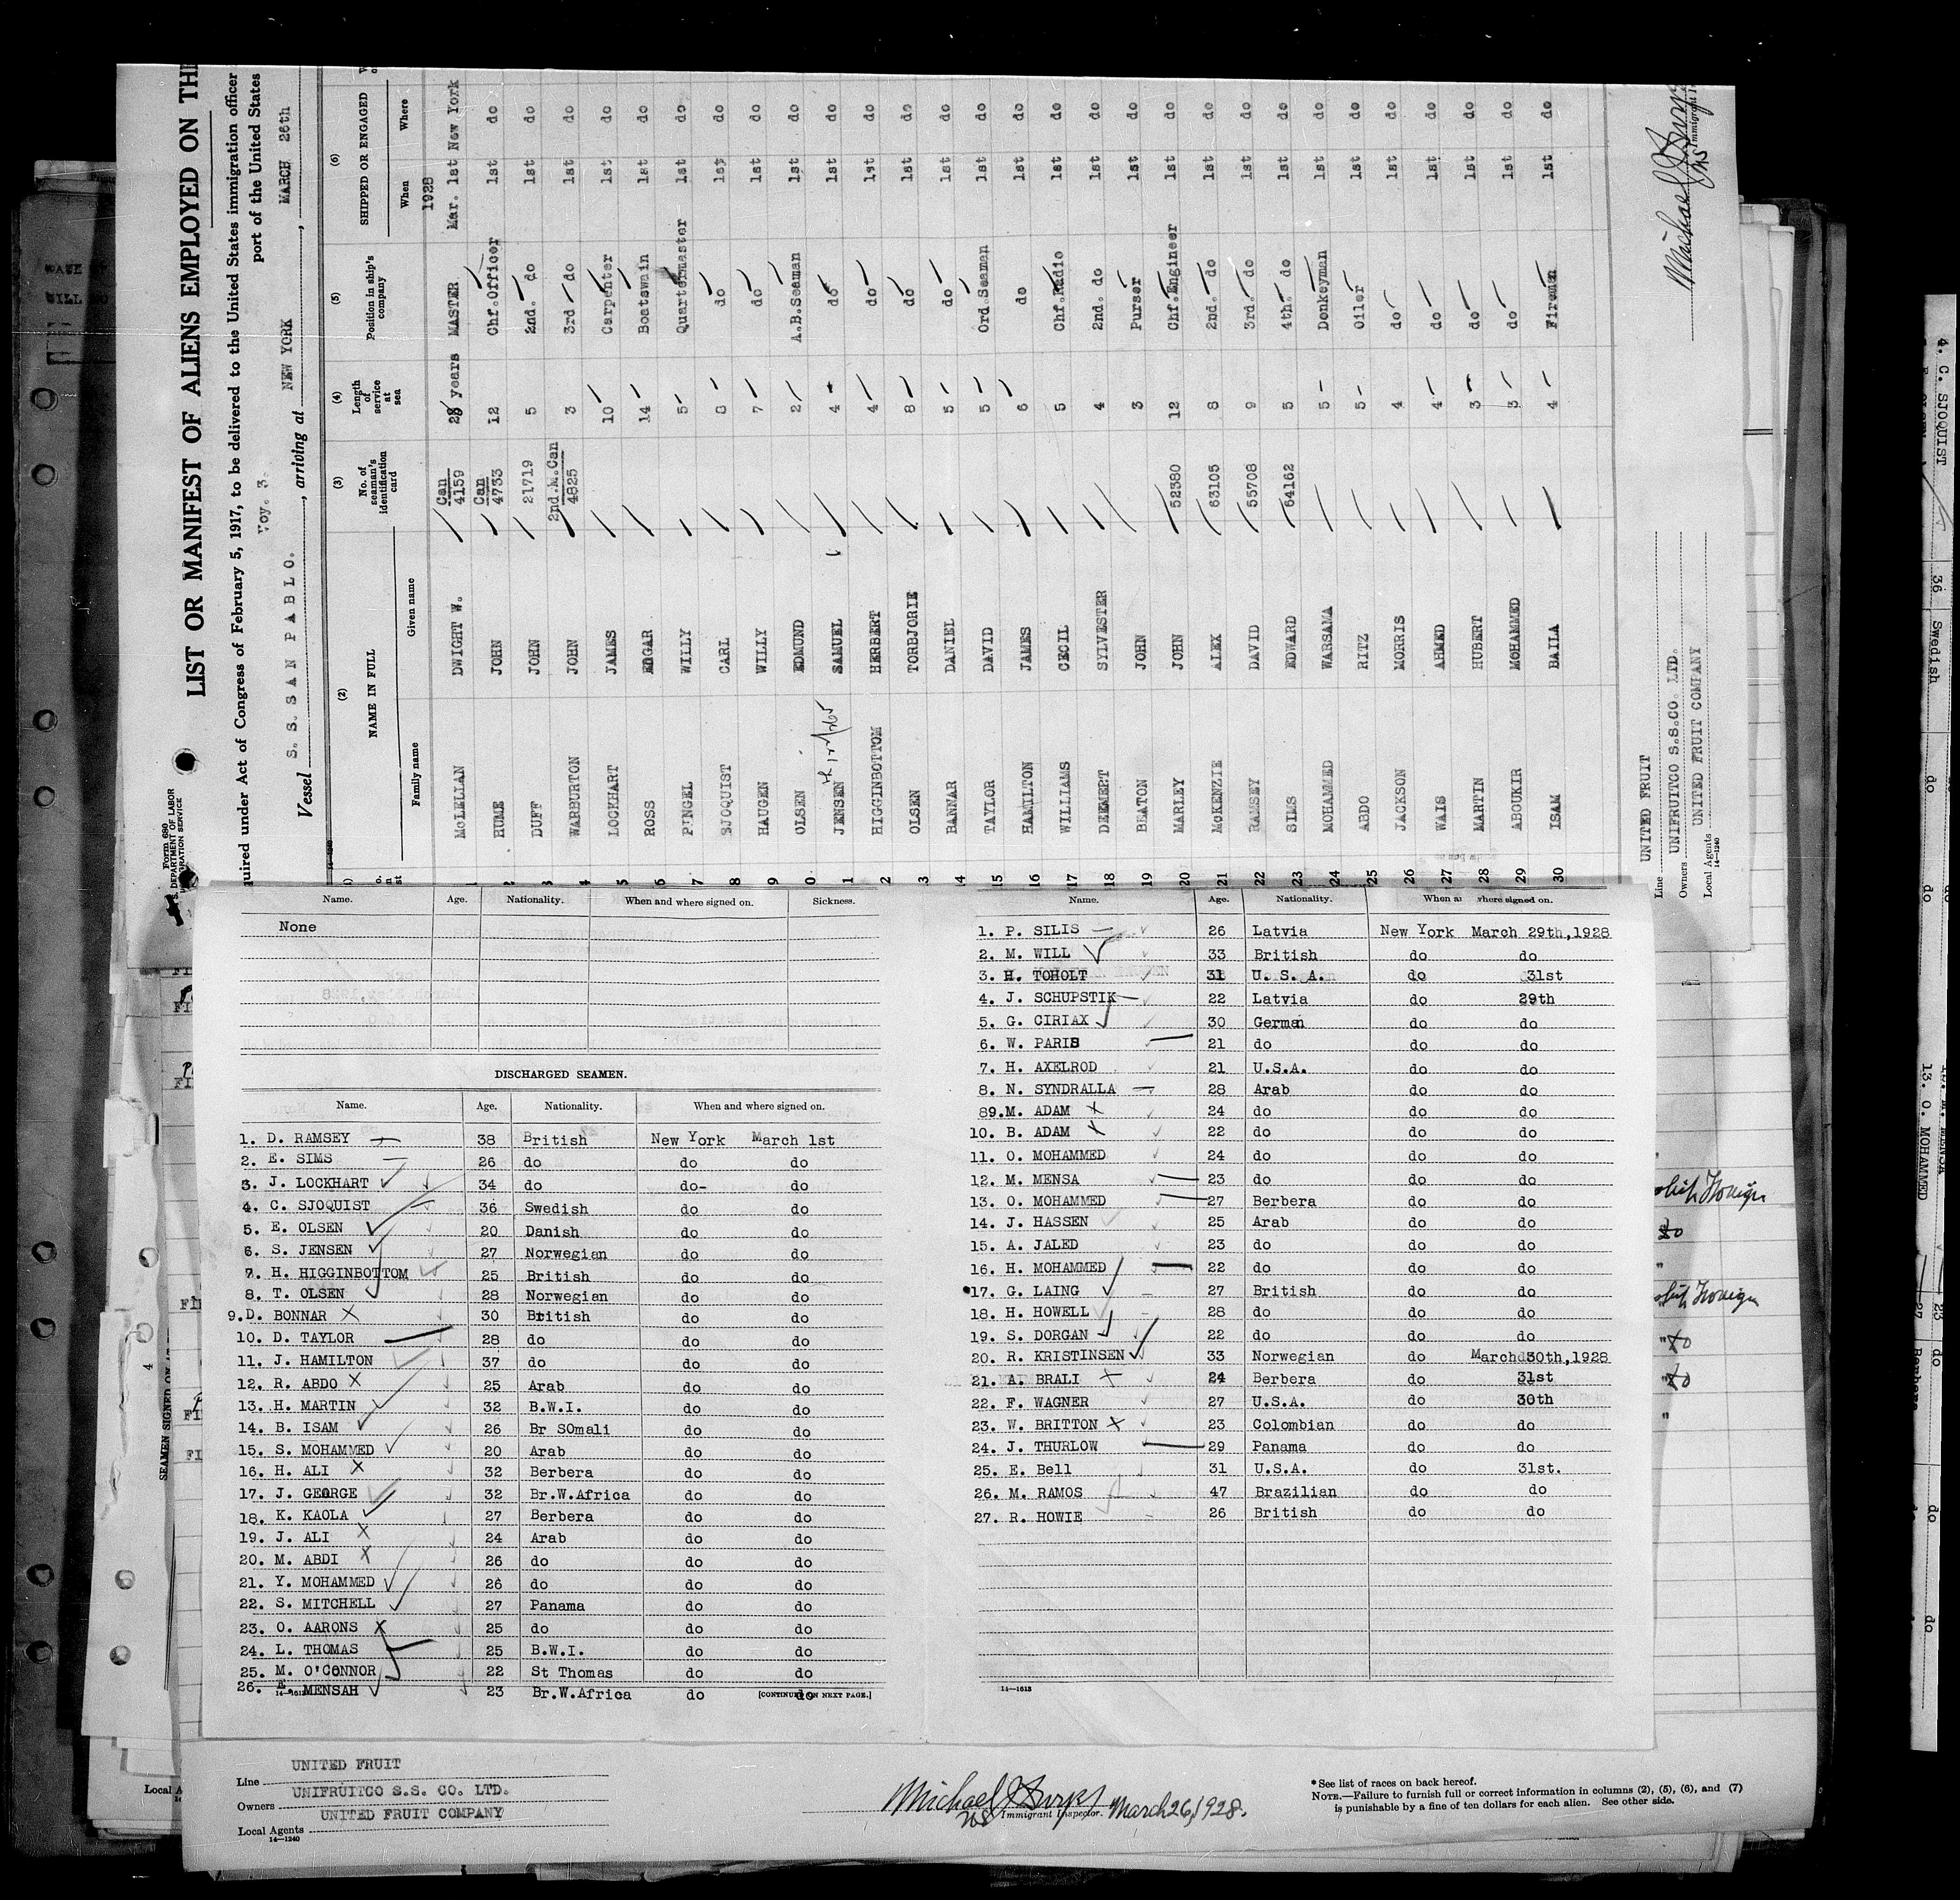 LIST OR MANIFEST OF ALIENS EMPLOYED ON TH
quired under Act of Congress of February 5, 1917, to be delivered to the United States immigration officer
port of the United States
Voy. 3.
Vessel S. S. SAN PABLO. , arriving at NEW YORK , MARCH 26th
Form 680
S. DEPARTMENT OF LABOR
(2) (3) (4) (5) (6)
NAME IN FULL No. of seaman's identification card Length of service at sea Position in ship's company SHIPPED OR ENGAGED
Family name Given name When Where
1928
McLELLAN DWIGHT W. Can 4159 28 years MASTER Mar. 1st New York
HUME JOHN Can 4733 12 Chf.Officer 1st do
DUFF JOHN 21719 5 2nd. do 1st do
WARBURTON JOHN 2nd.M.Can 4825 3 3rd do 1st do
LOCKHART JAMES 10 Carpenter 1st do
ROSS EDGAR 14 Boatswain 1st do
PINGEL WILLY 5 Quartermaster 1st do
SJOQUIST CARL 8 do 1st do
HAUGEN WILLY 7 do 1st do
OLSEN EDMUND 2 A.B.Seaman 1st do
JENSEN SAMUEL 4 do 1st do
HIGGINBOTTOM HERBERT 4 do 1st do
OLSEN TORBJORIE 8 do 1st do
BANNAR DANIEL 5 do 1st do
TAYLOR DAVID 5 Ord.Seaman 1st do
HAMILTON JAMES 6 do 1st do
WILLIAMS CECIL 5 Chf.Radio 1st do
DEEMERT SYLVESTER 4 2nd. do 1st do
BEATON JOHN 3 Purser 1st do
MARLEY JOHN 52380 12 Chf.Engineer 1st do
McKENZIE ALEX 63105 8 2nd. do 1st do
RAMSEY DAVID 55708 9 3rd. do 1st do
SIMS EDWARD 64162 5 4th. do 1st do
MOHAMMED WARSAMA 5 Donkeyman 1st do
ABDO RITZ 5 Oiler 1st do
JACKSON MORRIS 4 do 1st do
WAIS AHMED 4 do 1st do
MARTIN HUBERT 3 do 1st do
ABOUKIR MOHAMMED 3 do 1st do
ISAM BAILA 4 Fireman 1st do
Line UNITED FRUIT
Owners UNIFRUITCO S.S.CO. LTD.
Local Agents UNITED FRUIT COMPANY
14—1240
Name. Age. Nationality. When and where signed on. Sickness.
None
DISCHARGED SEAMEN.
Name. Age. Nationality. When and where signed on.
1. D. RAMSEY 38 British New York March 1st
2. E. SIMS 26 do do do
3. J. LOCKHART 34 do do- do
4. C. SJOQUIST 36 Swedish do do
5. E. OLSEN 20 Danish do do
6. S. JENSEN 27 Norwegian do do
7. H. HIGGINBOTTOM 25 British do do
8. T. OLSEN 28 Norwegian do do
9.D. BONNAR 30 British do do
10. D. TAYLOR 28 do do do
11. J. HAMILTON 37 do do do
12. R. ABDO 25 Arab do do
13. H. MARTIN 32 B.W.I. do do
14. B. ISAM 26 Br SOmali do do
15. S. MOHAMMED 20 Arab do do
16. H. ALI 32 Berbera do do
17. J. GEORGE 32 Br.W.Africa do do
18. K. KAOLA 27 Berbera do do
19. J. ALI 24 Arab do do
20. M. ABDI 26 do do do
21. Y. MOHAMMED 26 do do do
22. S. MITCHELL 27 Panama do do
23. O. AARONS 25 do do do
24. L. THOMAS 25 B.W.I. do do
25. M. O'CONNOR 22 St Thomas do do
26. E. MENSAH 23 Br.W.Africa do do
14—1613 [CONTINUED ON NEXT PAGE.]
Name. Age. Nationality. When and where signed on.
1. P. SILIS 26 Latvia New York March 29th,1928
2. M. WILL 33 British do do
3. H. TOHOLT 31 U.S.A. do 31st
4. J. SCHUPSTIK 22 Latvia do 29th
5. G. CIRIAX 30 German do do
6. W. PARIS 21 do do do
7. H. AXELROD 21 U.S.A. do do
8. N. SYNDRALLA 28 Arab do do
89.M. ADAM 24 do do do
10. B. ADAM 22 do do do
11. O. MOHAMMED 24 do do do
12. M. MENSA 23 do do do
13. O. MOHAMMED 27 Berbera do do
14. J. HASSEN 25 Arab do do
15. A. JALED 23 do do do
16. H. MOHAMMED 22 do do do
17. G. LAING 27 British do do
18. H. HOWELL 28 do do do
19. S. DORGAN 22 do do do
20. R. KRISTINSEN 33 Norwegian do March 30th,1928
21. A. BRALI 24 Berbera do 31st
22. F. WAGNER 27 U.S.A. do 30th
23. W. BRITTON 23 Colombian do do
24. J. THURLOW 29 Panama do do
25. E. Bell 31 U.S.A. do 31st.
26. M. RAMOS 47 Brazilian do do
27. R. HOWIE 26 British do do
14—1613
Line UNITED FRUIT
Owners UNIFRUITCO S.S. CO. LTD.
Local Agents UNITED FRUIT COMPANY
14—1240
Immigrant Inspector. March 26, 1928.
* See list of races on back hereof.
NOTE.—Failure to furnish full or correct information in columns (2), (5), (6), and (7)
is punishable by a fine of ten dollars for each alien. See other side.
4. C. SJOQUIST 36 Swedish do do
13. O. MOHAMMED 27 Berbera do do